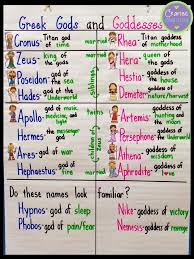 Greek Gods and Goddesses
Cronus- Titan god of time
married
Rhea- Titan goddess of mothers
Zeus- king of the gods
married
Hera- queen of the gods
Poseidon- god of sea
Hestia- goddess of home
Hades- god of Underworld
siblings
Demeter- goddess of nature/harvest
Apollo- god of medicine, music, and light
twins
Artemis- goddess of hunting
Hermes- god messenger
Persephone- goddess of the Underworld
Ares- god of war
children of Zeus
Athena- goddess of wisdom
Hephaestus- god of fire
married
Aphrodite- goddess of love
Do these names look familiar?
Hypnos- god of sleep
Nike- goddess of victory
Phobos- god of pain/fear
Nemesis- goddess of revenge